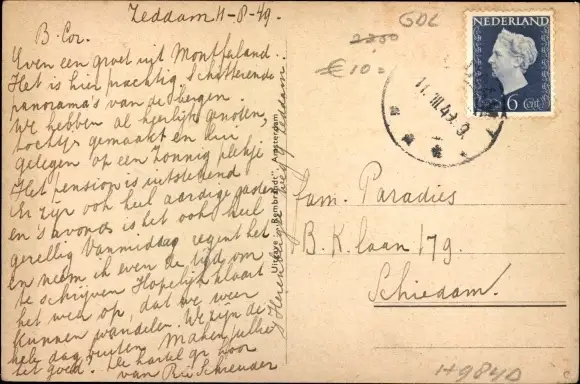 Zeddam 11-8-49.
B. Cor.
Even een groet uit Montferland.
Het is hier prachtig. Schitterende
panorama's van de bergen.
We hebben al heerlijk genoten,
tochtjes gemaakt en lui
gelegen op een zonnig plekje
Het pension is uitstekend
Er zijn ook heel aardige gasten
en 's avonds is het ook heel
gezellig Vanmiddag regent het
en neem ik even de tijd om
te schrijven Hopelijk klaart
het weer op, dat we weer
kunnen wandelen. We zijn de
hele dag buiten. Maken jullie
het goed? De hartel gr voor
van Rie Schreuder
's Heerenbergse weg Zeddam.
Uitgave „Rembrandt" Amsterdam
GDL
2250
€ 10=
NEDERLAND
6 cent
11.VIII.49.9.
Fam. Paradies
B.K. laan 179.
Schiedam.
H984D